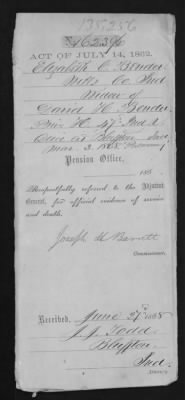 135,256
ACT OF JULY 14, 1862.
Elizabeth C. Bender
Wells Co Ind
Widow of
David H. Bender
Priv H 47" Ind
Died at Bluffton Ind
Mar 3. 1865
Pension Office,
186
Respectfully referred to the Adjutant
General, for official evidence of service
and death.
Joseph H Barrett
Commissioner.
Received, June 27" 1868
J. J. Todd
Bluffton
Ind.
Attorney.